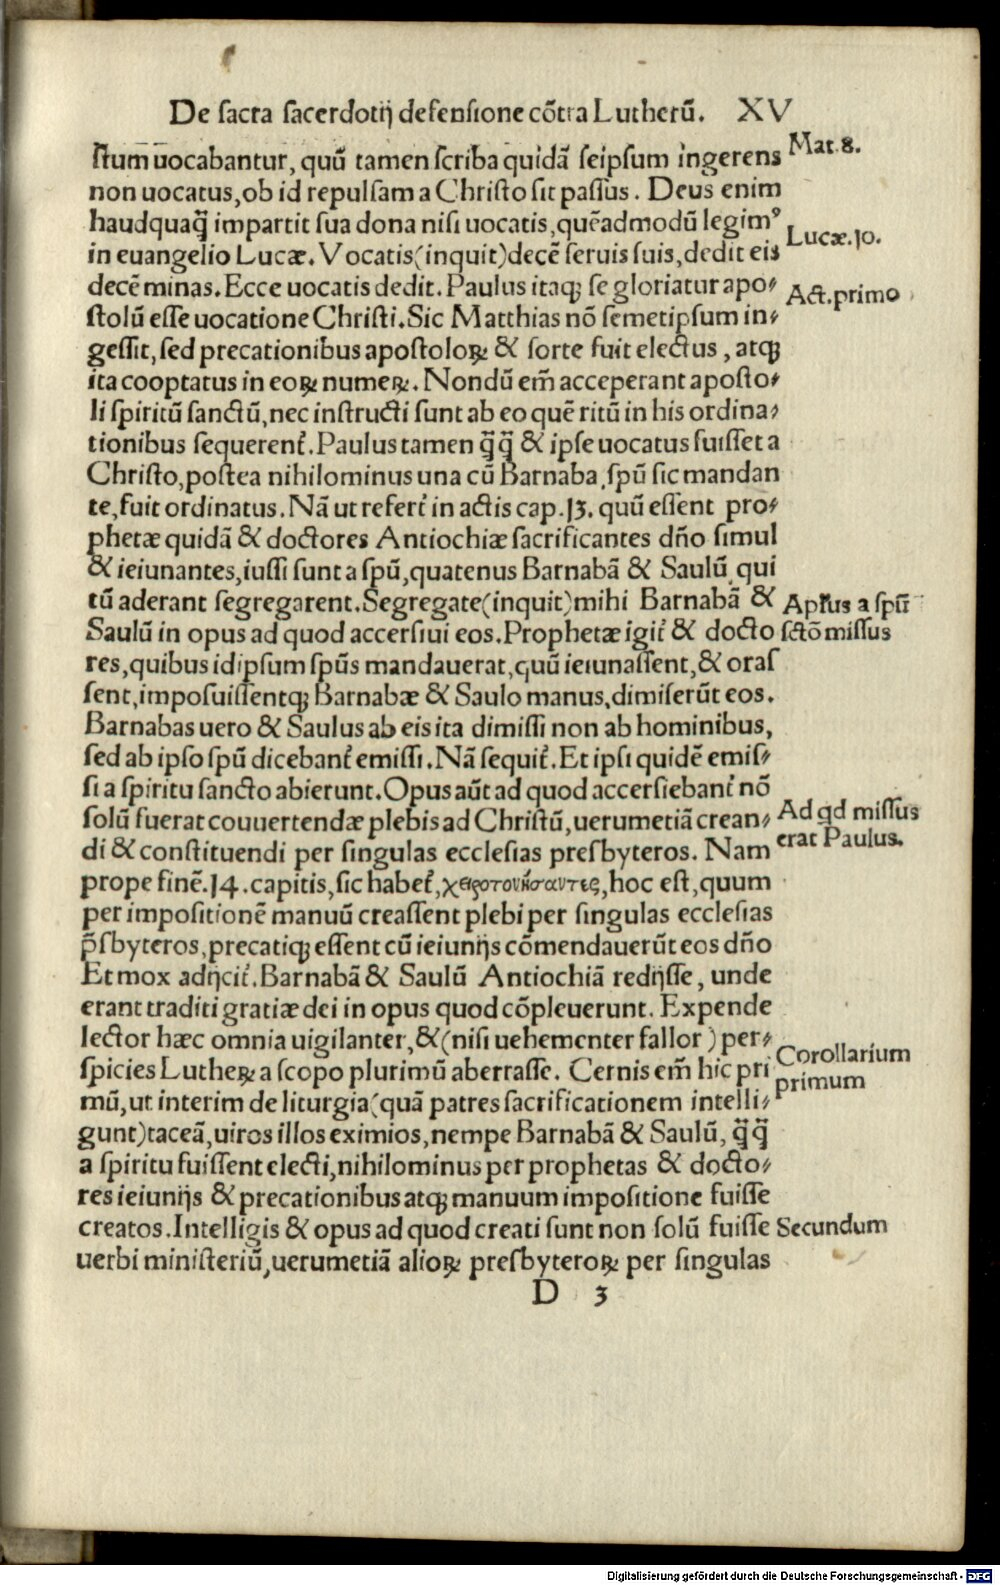 De sacra sacerdotij defensione cōtra Lutherū. XV
stum uocabantur, quū tamen scriba quidā seipsum ingerens
Mat. 8.
non uocatus, ob id repulsam a Christo sit passus. Deus enim
haudquaq̃ impartit sua dona nisi uocatis, quēadmodū legimꝰ
Lucæ. 10.
in euangelio Lucæ. Vocatis (inquit) decē seruis suis, dedit eis
decē minas. Ecce uocatis dedit. Paulus itaqꝫ se gloriatur apo⸗
Act. primo
stolū esse uocatione Christi. Sic Matthias nō semetipsum in⸗
gessit, sed precationibus apostoloꝝ & sorte fuit electus, atqꝫ
ita cooptatus in eoꝝ numeꝝ. Nondū em̃ acceperant aposto⸗
li spiritū sanctū, nec instructi sunt ab eo quē ritū in his ordina⸗
tionibus sequerent̃. Paulus tamen q̃q̃ & ipse uocatus fuisset a
Christo, postea nihilominus una cū Barnaba, spū sic mandan
te, fuit ordinatus. Nā ut refert̃ in actis cap. 13. quū essent pro⸗
phetæ quidā & doctores Antiochiæ sacrificantes dño simul
& ieiunantes, iussi sunt a spū, quatenus Barnabā & Saulū, qui
tū aderant segregarent. Segregate (inquit) mihi Barnabā &
Apłus a spū
Saulū in opus ad quod accersiui eos. Prophetæ igit̃ & docto
sctō missus
res, quibus idipsum spūs mandauerat, quū ieiunassent, & oras
sent, imposuissentqꝫ Barnabæ & Saulo manus, dimiserūt eos.
Barnabas uero & Saulus ab eis ita dimissi non ab hominibus,
sed ab ipso spū dicebant̃ emissi. Nā sequit̃. Et ipsi quidē emis⸗
si a spiritu sancto abierunt. Opus aūt ad quod accersiebant̃ nō
solū fuerat couuertendæ plebis ad Christū, uerumetiā crean⸗
Ad qd missus
di & constituendi per singulas ecclesias presbyteros. Nam
erat Paulus.
prope finē. 14. capitis, sic habet̃, χειροτονήσαντες, hoc est, quum
per impositionē manuū creassent plebi per singulas ecclesias
p̄sbyteros, precatiqꝫ essent cū ieiunijs cōmendauerūt eos dño
Et mox adijcit̃. Barnabā & Saulū Antiochiā redijsse, unde
erant traditi gratiæ dei in opus quod cōpleuerunt. Expende
lector hæc omnia uigilanter, & (nisi uehementer fallor) per⸗
spicies Lutheꝝ a scopo plurimū aberrasse. Cernis em̃ hic pri
Corollarium
primum
mū, ut interim de liturgia (quā patres sacrificationem intelli⸗
gunt) taceā, uiros illos eximios, nempe Barnabā & Saulū, q̃q̃
a spiritu fuissent electi, nihilominus per prophetas & docto⸗
res ieiunijs & precationibus atqꝫ manuum impositione fuisse
creatos. Intelligis & opus ad quod creati sunt non solū fuisse
Secundum
uerbi ministeriū, uerumetiā alioꝝ presbyteroꝝ per singulas
D 3
Digitalisierung gefördert durch die Deutsche Forschungsgemeinschaft - DFG